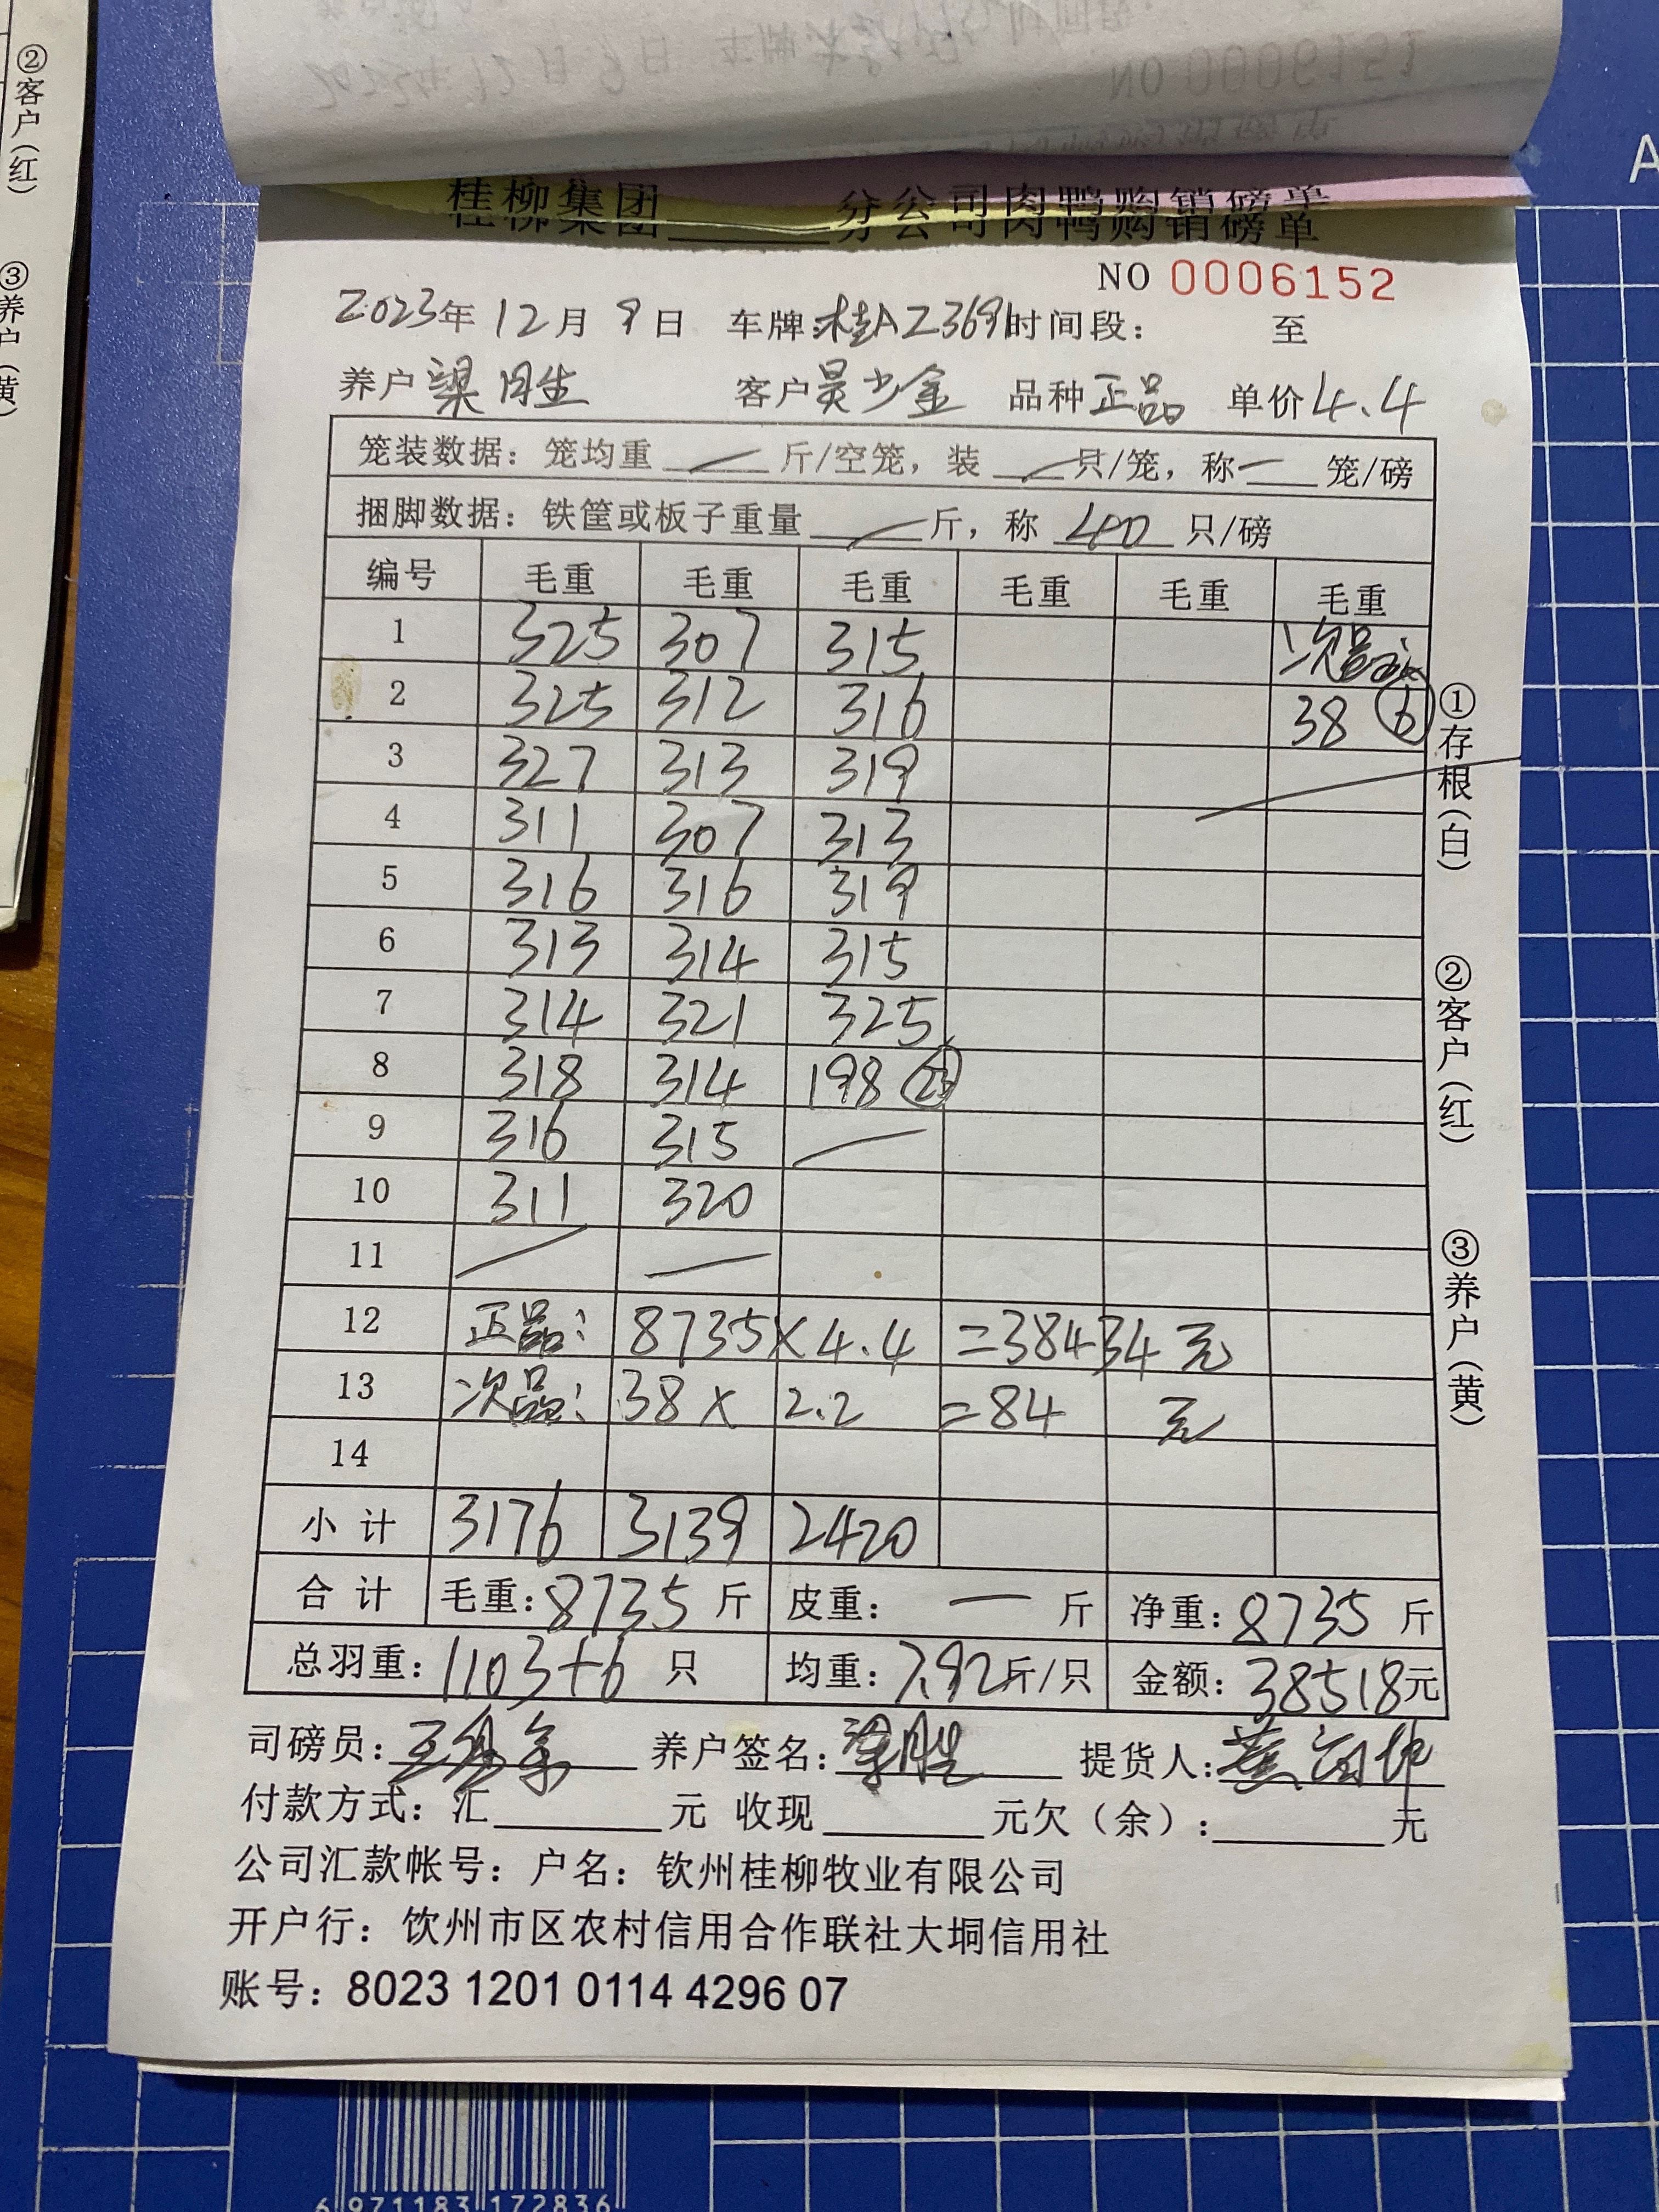 ②客户(红)
③养户(黄)
NO 0006151
桂柳集团 分公司肉鸭购销磅单
桂柳集团______分公司肉鸭购销磅单
NO 0006152
2023年 12月 9日 车牌:桂AZ3691 时间段: 至
养户 梁胜 客户 吴少金 品种 正品 单价 4.4
笼装数据: 笼均重 — 斤/空笼, 装 — 只/笼, 称 — 笼/磅
捆脚数据: 铁筐或板子重量 — 斤, 称 40 只/磅
编号 毛重 毛重 毛重 毛重 毛重 毛重
1 325 307 315 次品
2 325 312 316 38 ⑥
3 327 313 319
4 311 307 313
5 316 316 319
6 313 314 315
7 314 321 325
8 318 314 198
9 316 315 —
10 311 320
11 — —
12 正品: 8735 × 4.4 =38434 元
13 次品: 38 × 2.2 =84 元
14
小计 3176 3139 2420
合计 毛重: 8735 斤 皮重: — 斤 净重: 8735 斤
总羽重: 1103+6 只 均重: 7.92 斤/只 金额: 38518元
①存根(白)
②客户(红)
③养户(黄)
司磅员: 养户签名: 梁胜 提货人:
付款方式: 汇______元 收现______元欠(余):______元
公司汇款帐号: 户名: 钦州桂柳牧业有限公司
开户行: 饮州市区农村信用合作联社大垌信用社
账号: 8023 1201 0114 4296 07
6 971183 172836
A